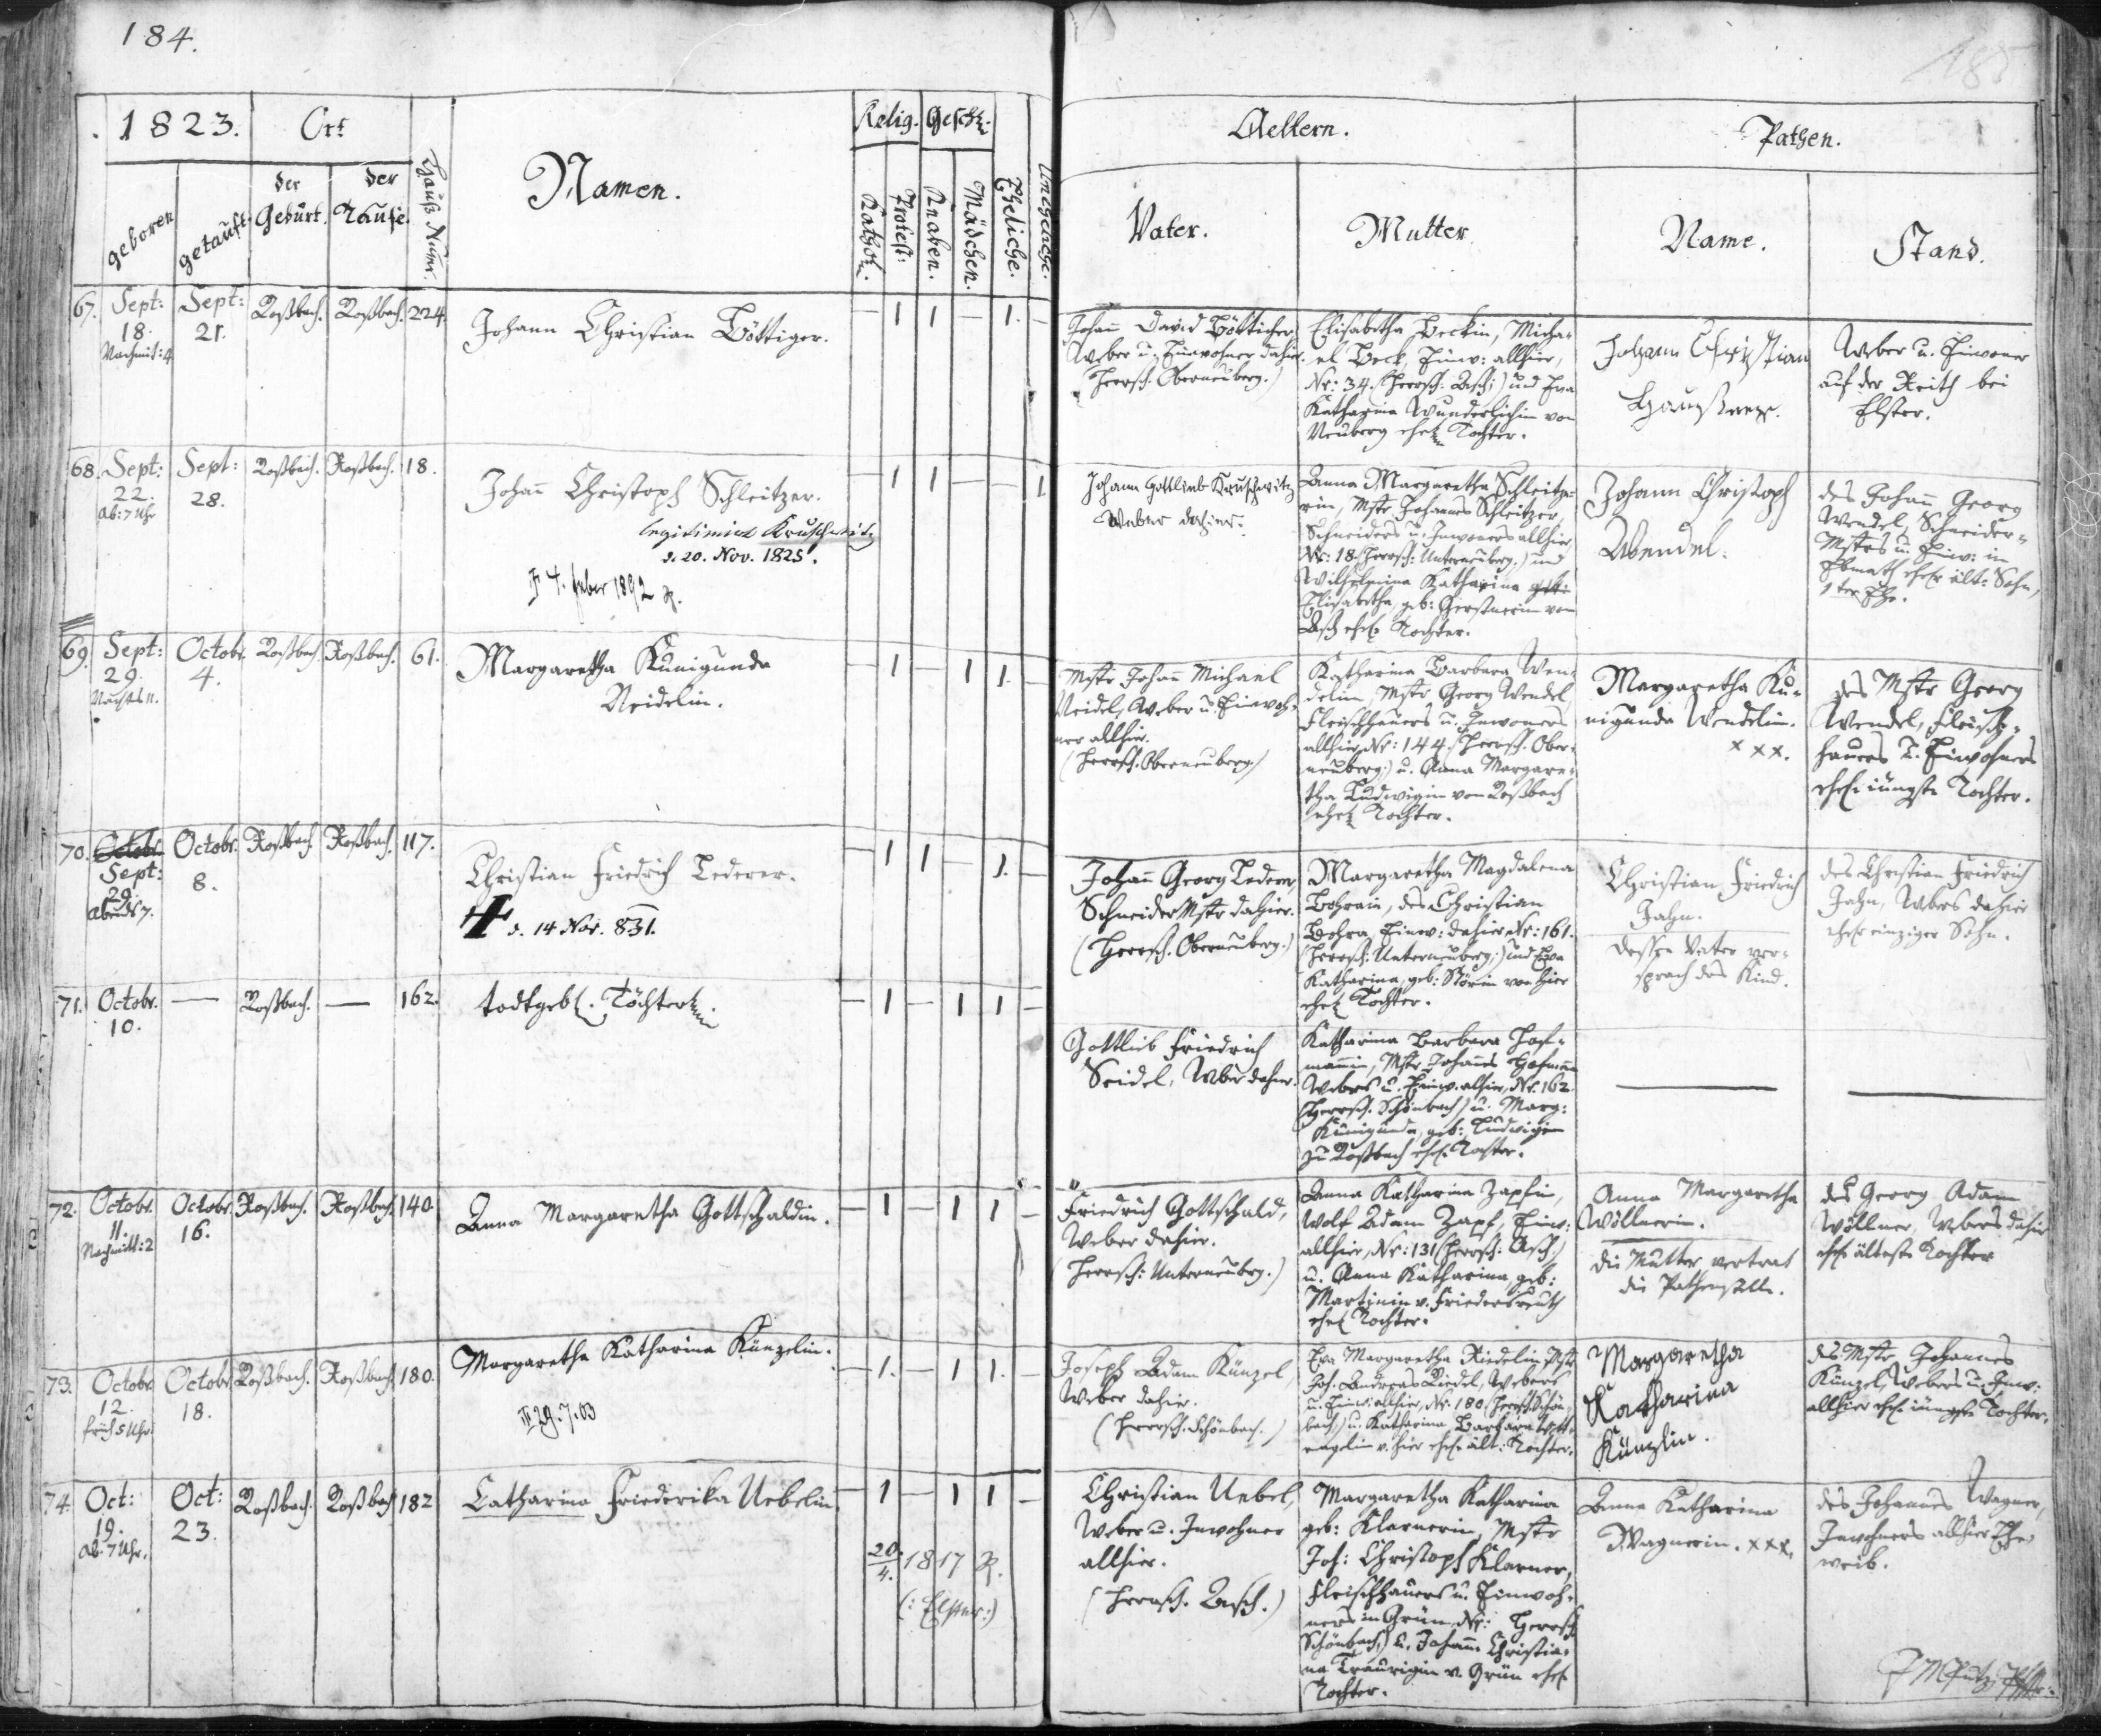 184.
185
1823. Ort
geboren getauft der Geburt. der Taufe. Hauß Num̄.
Namen.
Relig. Geschl.
Kathol. Protest: Knaben. Mädchen. Eheliche. Uneheliche.
Aeltern. Pathen.
Vater. Mutter Name. Stand.
67. Sept: 18. Nachmit: 4 Sept: 21. Roßbach. Roßbach. 224.
Johann Christian Böttiger.
— 1 1 — 1. —
Johan̄ David Bötticher
Weber u. Einwohner dahier.
(Herrsch. Oberneuberg.)
Elisabetha Beckin, Micha=
el Beck, Einw: allhier,
Nr: 34. (Herrsch: Asch:) und Eva
Katharina Wunderlichin von
Neuberg ehel. Tochter.
Johann Christian
Haußner.
Weber u. Einwoner
auf der Reith bei
Elster.
68. Sept: 22. Ab: 7 Uhr Sept: 28. Roßbach. Roßbach. 18.
Johan̄ Christoph Schleitzer.
legitimirt Kruschwitz
d. 20. Nov. 1825.
4. Feber 1892
— 1 1 — — 1
Johann Gottlieb Kruschwitz
Weber dahier.
Anna Margaretha Schleitze=
rin, Mstr. Johannes Schleitzer,
Schneiders u. Inwoners allhier,
Nr: 18. (Herrsch: Unterneuberg.) und
Wilhelmina Katharina geb:
Elisabetha, geb: Gerstnerin von
Asch ehel. Tochter.
Johann Christoph
Wendel.
des Johan̄ Georg
Wendel, Schneider=
Mstrs u. Einw: in
Ebmath ehel. ält: Sohn,
1ter Ehe.
69. Sept: 29. Nachts 11. Octobr. 4. Roßbach. Roßbach. 61.
Margaretha Kunigunda
Neidelin.
— 1 — 1 1. —
Mstr Johan̄ Michael
Neidel, Weber u. Einwoh=
ner allhier.
(Herrsch. Oberneuberg.)
Katharina Barbara Wen=
delin, Mstr Georg Wendel
Fleischhauers u. Inwoners
allhier, Nr: 144. (Herrsch. Ober=
neuberg:) u. Anna Margare=
tha Ludwigin von Roßbach
ehel. Tochter.
Margaretha Ku=
nigunda Wendelin.
xxx.
des Mstr Georg
Wendel, Fleisch=
hauers u. Einwohners
ehel. jüngste Tochter.
70. Octobr. Sept: 29. Abends 7. Octobr. 8. Roßbach. Roßbach. 117.
Christian Friedrich Lederer.
d. 14 Nov. 831.
— 1 1 — 1. —
Johan̄ Georg Lederer,
Schneider Mstr dahier.
(Herrsch. Oberneuberg.)
Margaretha Magdalena
Bohrain, des Christian
Bohra, Einw: dahier Nr: 161.
(Herrsch: Unterneuberg:) und Eva
Katharina, geb: Störin von hier
ehel. Tochter.
Christian Friedrich
Jahn.
Dessen Vater ver=
sprach das Kind.
des Christian Friedrich
Jahn, Webers dahier
ehel. einziger Sohn.
71. Octobr. 10. — Roßbach. — 162.
todtgeb. Töchterl.
— 1 — 1 1 —
Gottlieb Friedrich
Seidel, Weber dahier.
Katharina Barbara Hof=
män̄in, Mstr Johan̄es Hofman̄
Webers u. Einw. allhier, Nr. 162
(Herrsch. Schönbach) u. Marg:
Kunigunda, geb: Ludwigin
zu Roßbach ehel. Tochter.
72. Octobr. 11. Nachmitt: 2 Octobr. 16. Roßbach. Roßbach. 140.
Anna Margaretha Gottschaldin.
— 1 — 1 1 —
Friedrich Gottschald,
Weber dahier.
(Herrsch: Unterneubrg.)
Anna Katharina Zapfin,
Wolf Adam Zapf, Einw:
allhier, Nr: 131 (Herrsch: Asch.)
u. Anna Katharina geb:
Martinin v. Friedersreuth
ehel. Tochter.
Anna Margaretha
Wöllnerin.
Die Mutter vertrat
die Pathenstelle.
des Georg Adam
Wöllner, Webers dahier
ehel. älteste Tochter
73. Octobr. 12. Früh 5 Uhr Octobr. 18. Roßbach. Roßbach. 180.
Margaretha Katharina Künzelin.
29.7.03
— 1. — 1 1. —
Joseph Adam Künzel,
Weber dahier.
(Herrsch. Schönbach.)
Eva Margaretha Riedelin, Mstr
Joh. Andreas Riedel, Webers
u. Einw: allhier, Nr. 180 (Herrsch. Schön=
bach) u. Katharina Barbara
v. hier ehel. ält: Tochter.
Margaretha
Katharina
Künzlin.
des Mstr Johannes
Künzel, Webers u. Inw:
allhier ehel. jüngste Tochter.
74. Oct: 19. Ab: 7 Uhr. Oct: 23. Roßbach. Roßbach 182
Catharina Friederika Uebelin.
— 1 — 1 1 —
20./4. 1817
(: Elster:)
Christian Uebel,
Weber u. Inwohner
allhier.
(Herrsch. Asch.)
Margaretha Katharina
geb: Klarnerin, Mstr
Joh: Christoph Klarner,
Fleischhauers u. Einwoh=
ners in Grün, Nr: Herrsch
Schönbach,) u. Johan̄ Christia=
na Traurigin v. Grün ehel.
Tochter.
Anna Katharina
Wagnerin. xxx.
des Johannes Wagner,
Inwohners allhier Ehe=
weib.